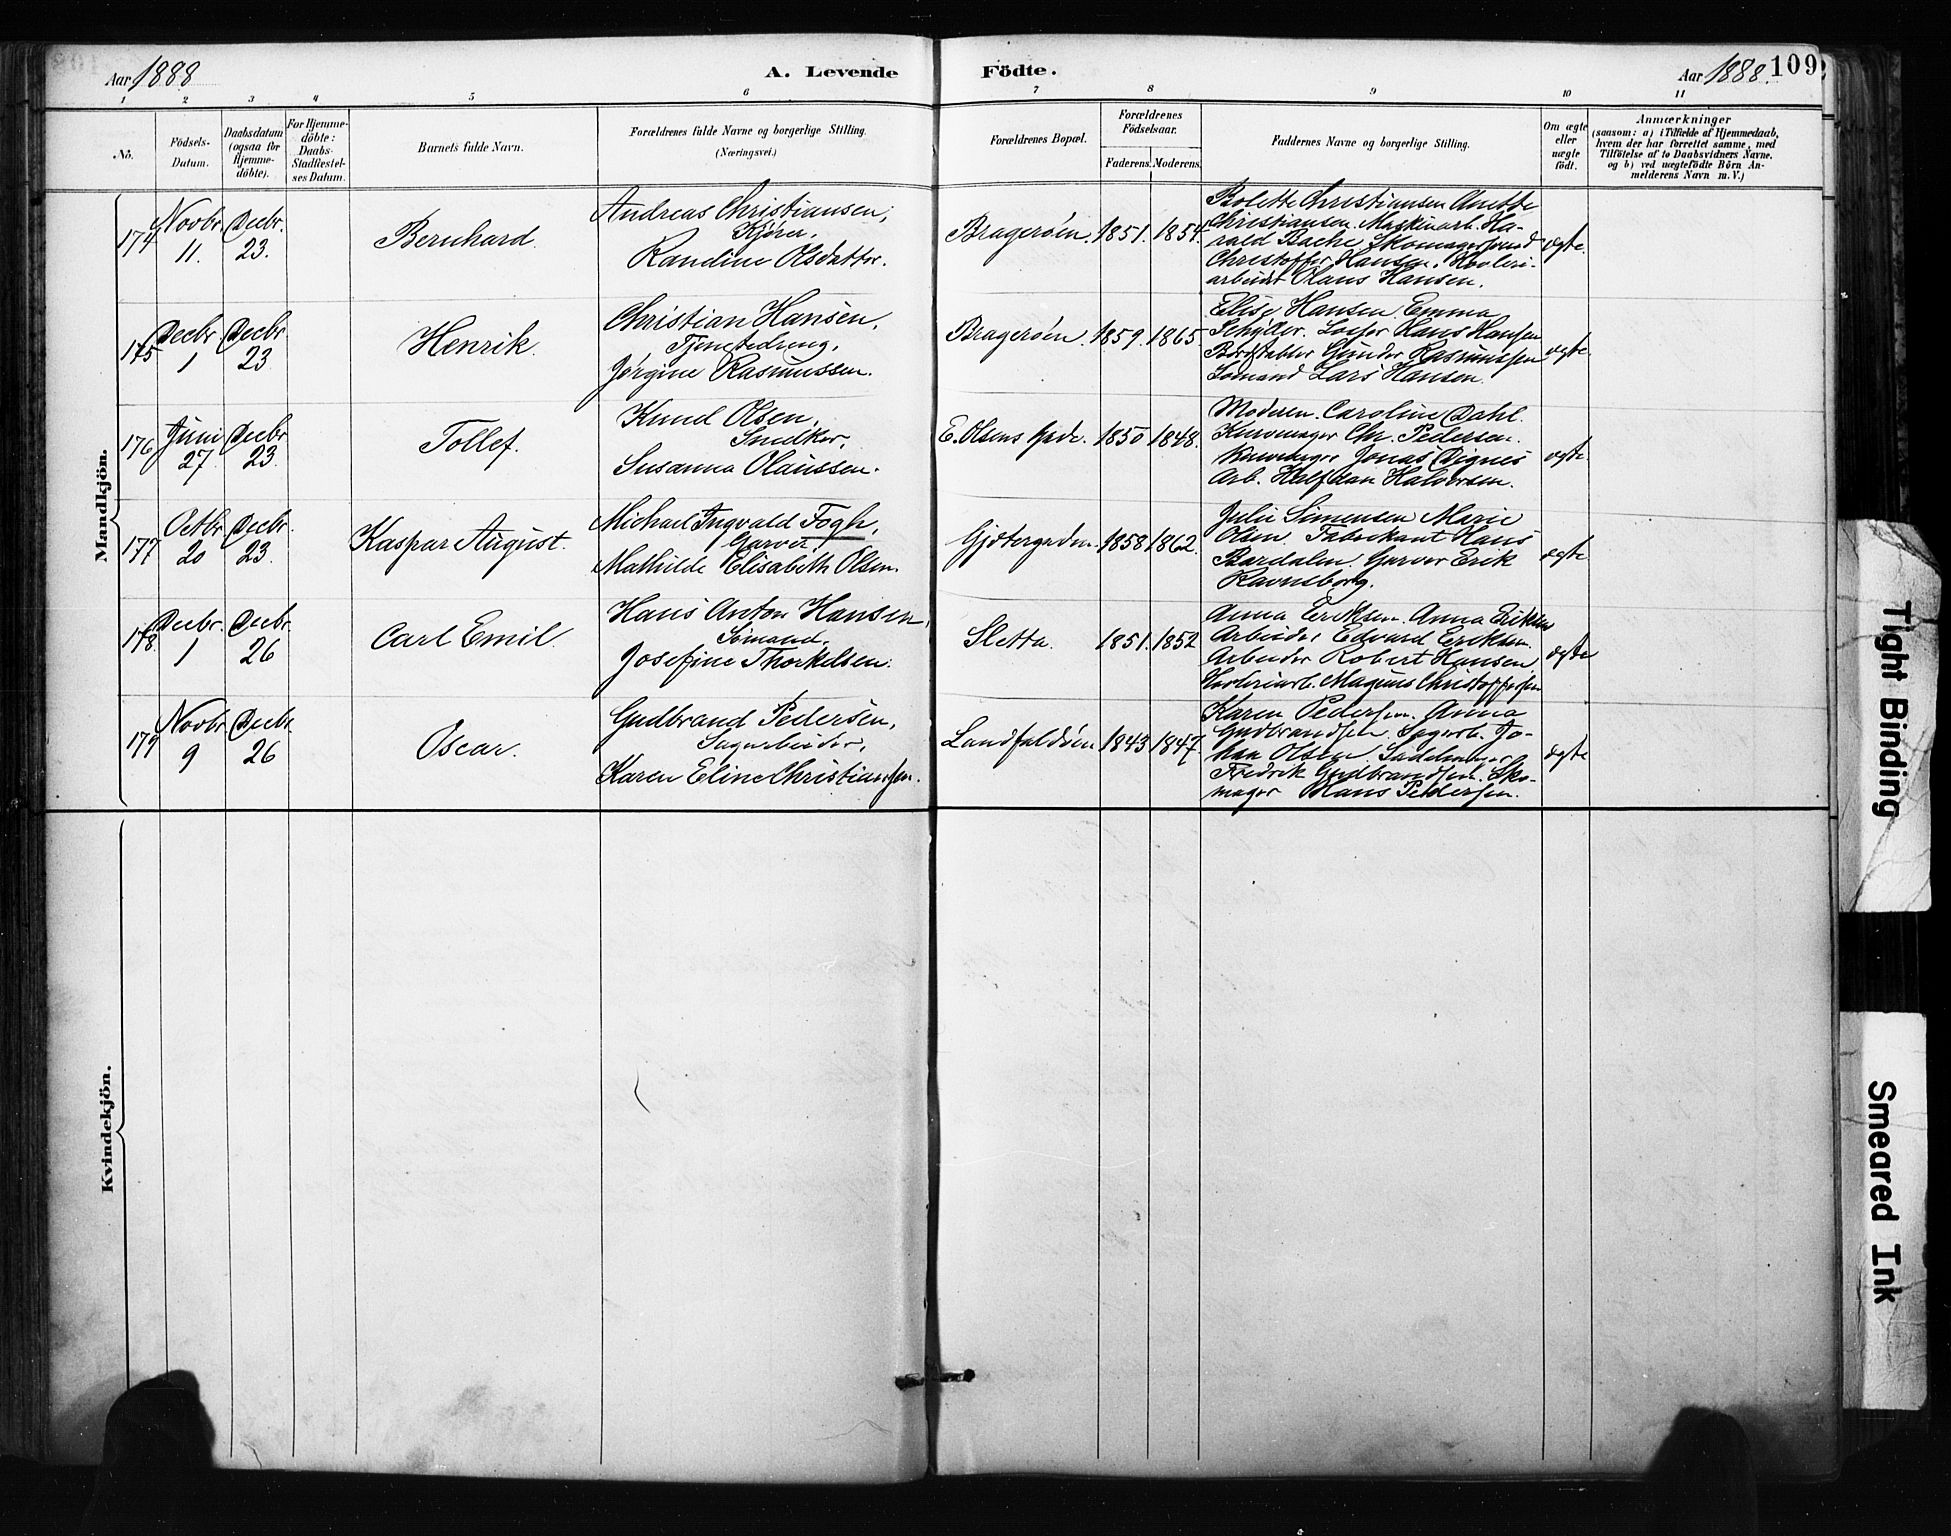 Aar 1888
A. Levende
Födte.
Aar 1888. 109
1 2 3 4 5 6 7 8 9 10 11
No.
Födsels-Datum.
Daabsdatum (ogsaa for Hjemmedöbte).
For Hjemmedöbte: Daabs-Stadfæstelses Datum.
Barnets fulde Navn.
Forældrenes fulde Navne og borgerlige Stilling. (Næringsvei.)
Forældrenes Bopæl.
Forældrenes Födselsaar.
Faderens. Moderens.
Faddernes Navne og borgerlige Stilling.
Om ægte eller uægte födt.
Anmærkninger
(saasom: a) i Tilfælde af Hjemmedaab, hvem der har forrettet samme, med Tilföielse af to Daabsvidners Navne, og b) ved uægtefödte Börn Anmelderens Navn m. V.)
Mandkjön.
174
Novbr. 11.
Decbr. 23.
Bernhard.
Andreas Christiansen,
Kjører,
Randine Olsdatter.
Bragerøen.
1851. 1854.
Bolette Christiansen Anette
Christiansen. Maskinarb. Ha-
rald Bache, Skomagersvend
Christoffer Hansen. Høvleri-
arbeider Olaus Hansen.
ægte.
175
Decbr 1
Decbr 23
Henrik.
Christian Hansen,
Tjenestedreng,
Jørgine Rasmussen.
Bragerøen.
1859. 1865
Elise Hansen. Emma
Hans Hansen
Gunder Rasmussen
Sømand Lars Hansen.
ægte.
176
Juni 27
Decbr 23.
Tollef.
Knud Olsen,
Snedker,
Susanna Olaussen.
E. Olsens Gade.
1850 1848.
Moderen. Caroline Dahl.
Kurvmager Chr. Pedersen.
Jonas Dignes
Arb. Halfdan Halvorsen.
ægte.
177
Octbr 20
Decbr. 23.
Kaspar August.
Michael Ingvald Fogh,
Garver,
Mathilde Elisabeth Olsen.
Gjetergaden
1858 1862.
Julie Simensen Marie
Olsen. Fabrikant Hans
Bardalen. Garver Erik
Ravnsborg.
ægte
178.
Decbr. 1
Decbr. 26
Carl Emil.
Hans Anton Hansen,
Sømand,
Josefine Thorkelsen.
Sletta.
1851. 1852
Anna Eriksen. Anna Eriksen
Arbeider Edvard Eriksen.
Arbeider Robert Hansen
Høvleriarb. Magnus Christoffersen
ægte
179
Novbr. 9
Decbr. 26
Oscar.
Gudbrand Pedersen,
Sagarbeider,
Karen Eline Christiansen.
Landfaldøen
1843 1847.
Karen Pedersen. Anna
Gudbrandsen. Sagarb. Jo-
han Olsen. Sadelmager
Fredrik Gudbrandsen. Sko-
mager Hans Pedersen.
ægte
Kvindekjön.
Tight Binding
Smeared Ink